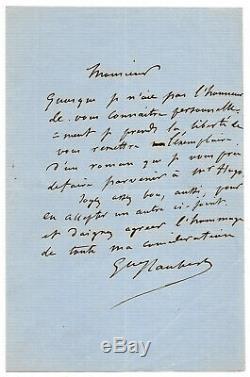 Monsieur
Quoique je n'aie pas l'honneur
de vous connaitre personnelle-
-ment je prends la liberté de
vous remettre l'exemplaire
d'un roman que je vous prie
de faire parvenir à Mr Hugo.
Soyez assez bon, aussi, pour
en accepter un autre ci-joint.
et daignez agréer l'hommage
de toute ma considération
Gve Flaubert